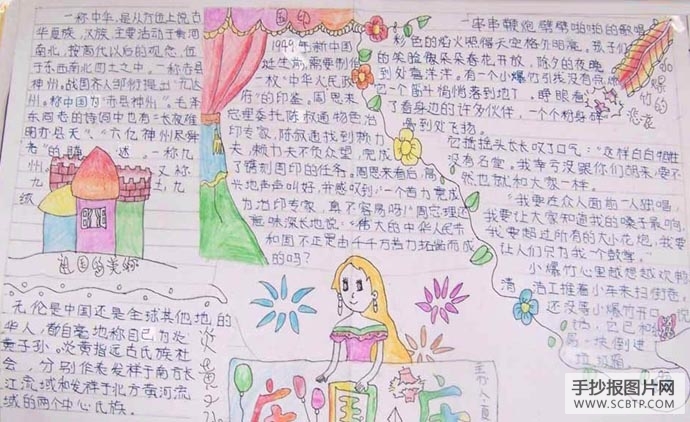 一称中华,是从方位上说古
华夏族、汉族,主要活动于黄河
南北,按商代以后的观念,位
于东西南北四土之中。一称赤县
神州。战国术人邹衍提出“九大
州。称中国为“赤县神州”。毛泽
东同志的诗词中也有“长夜难
明赤县天”、“六亿神州尽舜
尧”的 述。一称九
州。 又称
九 土,九
域
祖国的美称
国印
1949年新中国
诞生营,需要制作
一枚“中华人民政
府”的印鉴。周恩来
总理委托陈叔通物色治
印专家,陈叔通找到赖力
夫,赖力夫不负众望,完成
了镌刻国印的任务。周恩来看后,高
兴地声声叫好,并感叹到:“一个苦力完成
为治印专家,真不容易呀!”周总理还
意味深长地说:“伟大的中华人民共
和国不正是由千千万苦力拓凿而成
的吗?
一串串鞭炮劈劈啪啪的歌唱
彩色的焰火照得天空格外明亮,孩子们
的笑脸像朵朵春花开放,除夕的夜晚
到处喜洋洋。有一个小爆竹引线没有点燃
它一个筋斗悄悄落到地下,睁眼看
了看身边的许多伙伴,一个个粉身碎
骨到处飞扬。
小爆竹的悲哀
它摇摇头长长叹了口气:“这样白白牺牲
没有名堂。我幸亏没跟你们胡来,要不
然也就和大家一样。
“我要在众人面前一人独唱,
我要让大家知道我的嗓子最响,
我要超过所有的大小花炮,我要
让人们只为我一个鼓掌。”
小爆竹心里越想越欢畅
清洁工推着小车来扫街巷。
还没等小爆竹开口说
话,它已和
易 块倒进
垃圾箱
无伦是中国还是全球其他地的
华人,都自豪地称自己为炎
黄子孙。炎黄指远古氏族社
会,分别作表发样于南方长
江流域和发样于北方黄河流
域的两个中心民族。
炎黄子
庆 国 庆
手抄报图片网
WWW.SCBTP.COM